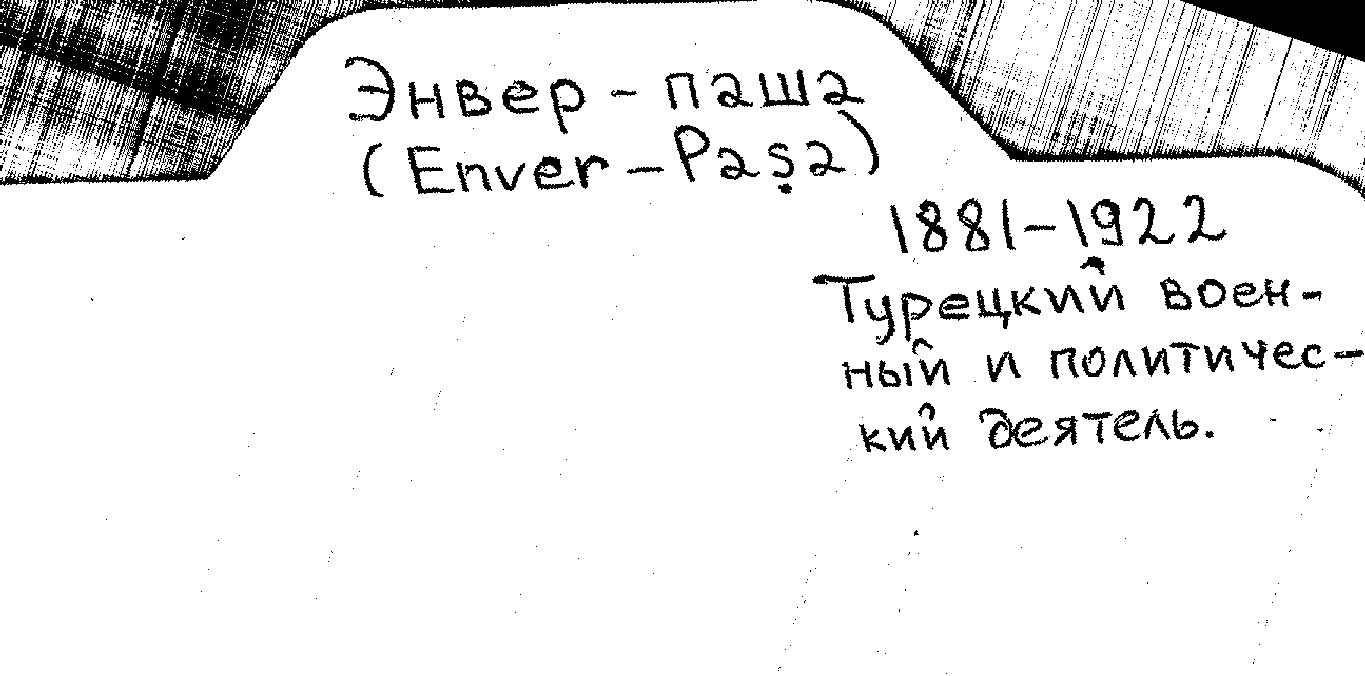 Энвер-паша
(Enver-Paşa)
1881-1922
Турецкий воен-
ный и политичес-
кий деятель.